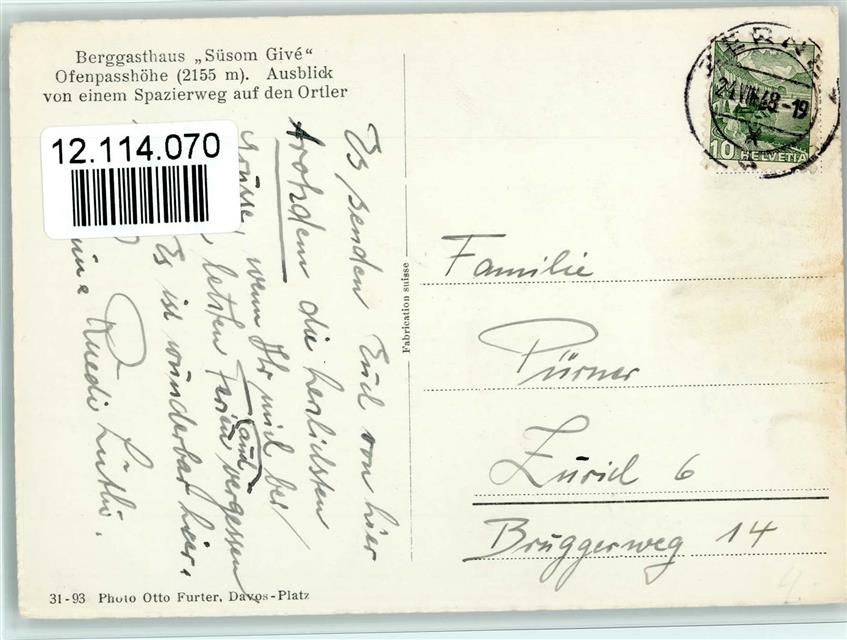 Berggasthaus „Süsom Givé“
Ofenpasshöhe (2155 m). Ausblick
von einem Spazierweg auf den Ortler
12.114.070
Es senden Euch von hier
trotzdem die herzlichsten
Grüsse, wenn Ihr mich bei
letzten Ferien auch vergessen
Es ist wunderbar hier.
Ruedi Lüthi.
Fabrication suisse
10 HELVETIA
BERN
21.VIII.48-19
Familie
Pürner
Zürich 6
Bruggerweg 14
31-93 Photo Otto Furter, Davos-Platz